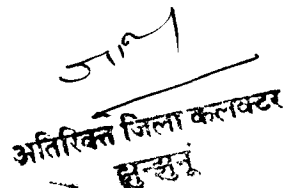 अतिरिक्त जिला कलक्टर
झुन्झुनूं